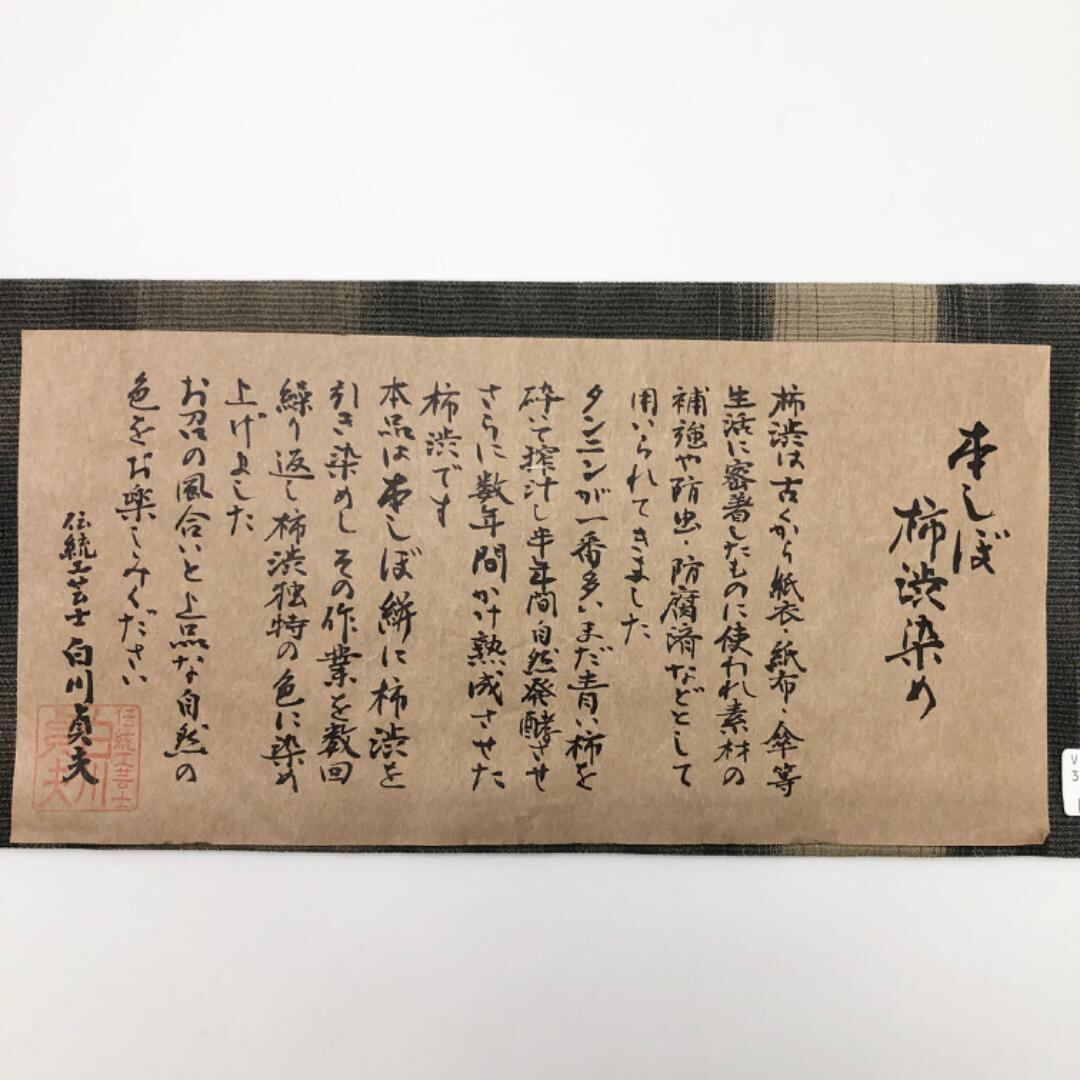 本しぼ
柿渋染め
柿渋は古くから紙衣・紙布・傘等
生活に密着したものに使われ素材の
補強や防虫・防腐済などとして
用いられてきました
タンニンが一番多いまだ青い柿を
砕いて搾汁し半年間自然発酵させ
さらに数年間かけ熟成させた
柿渋です
本品は本しぼ絣に柿渋を
引き染めし その作業を数回
繰り返し柿渋独特の色に染め
上げました
お召の風合いと上品な自然の
色をお楽しみください
伝統工芸士 白川貞夫
伝統工芸士
白川
貞夫
V
3